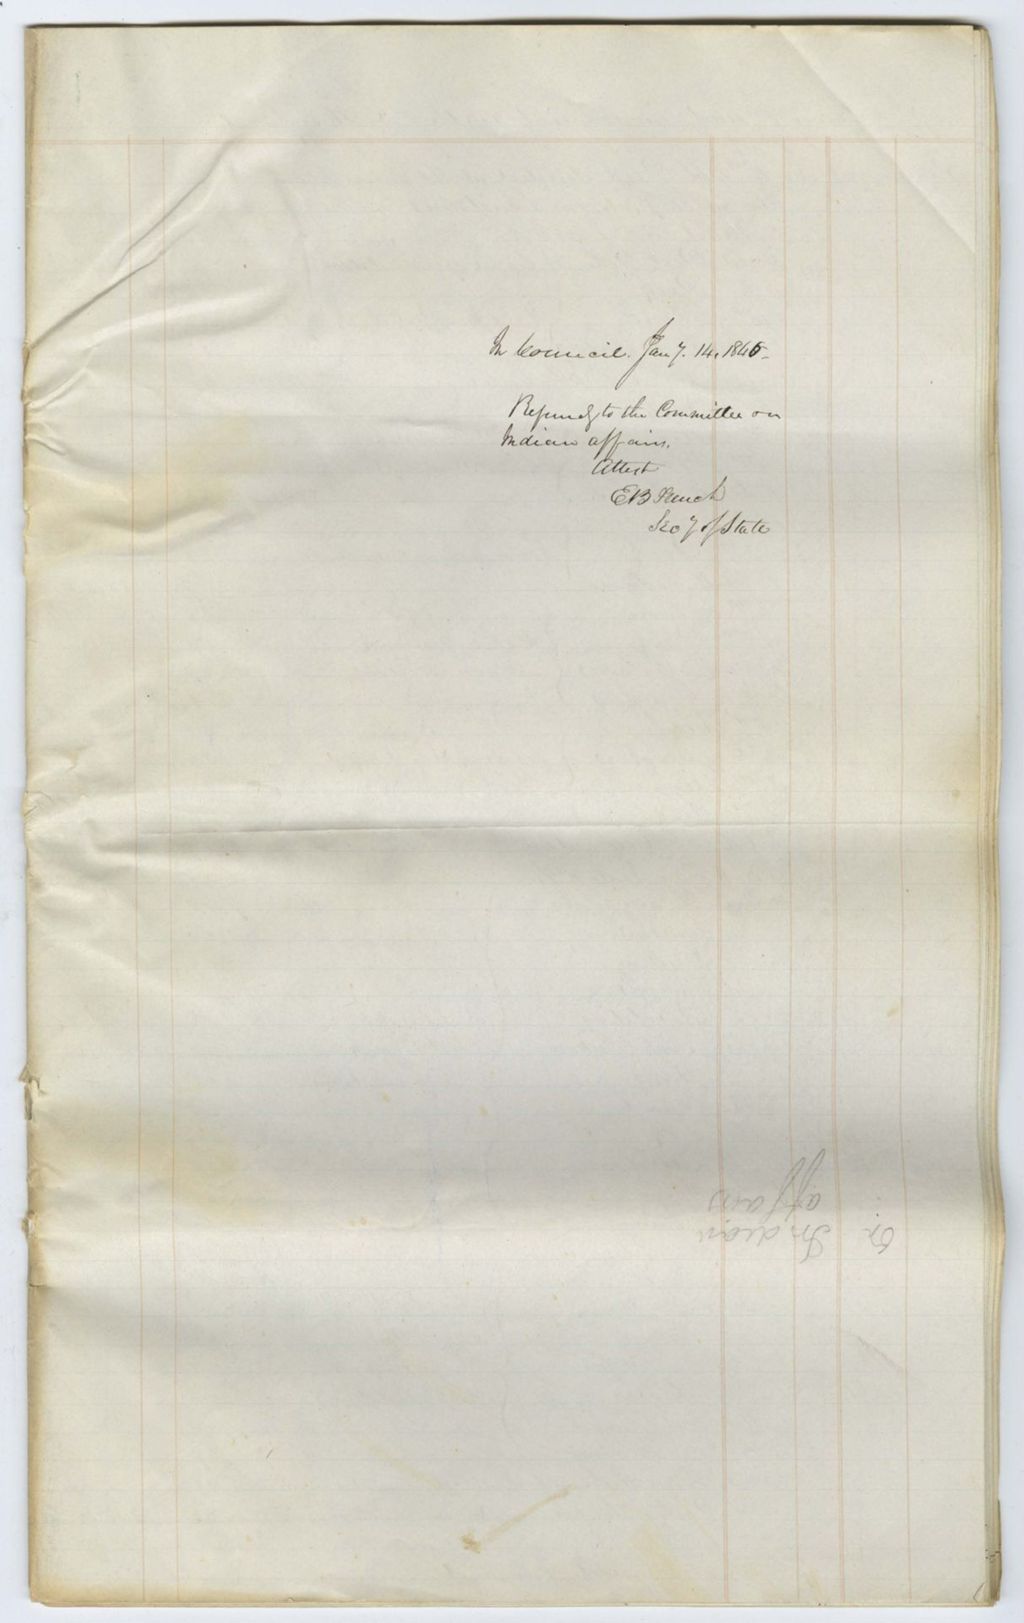 In Council. Jany. 14, 1846.
Referred to the Committee on
Indian affairs.
Attest
EB French
Secy of State
On Indian
affairs